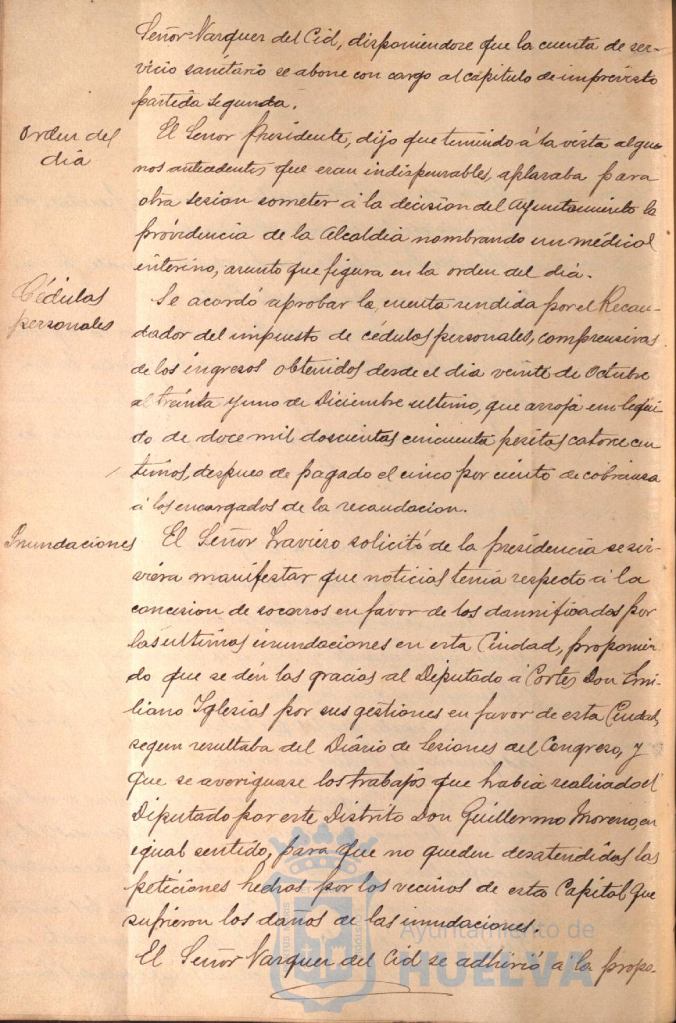 Señor Vazquez del Cid, disponiendose que la cuenta de ser-
vicio sanitario se abone con cargo al capitulo de imprevisto
partida segunda.
Orden del
dia
El Señor Presidente, dijo que teniendo á la vista algu-
nos antecedentes que eran indispensables, aplazaba para
otra sesion someter á la decision del Ayuntamiento la
providencia de la Alcaldia nombrando un médico
interino, asunto que figura en la orden del dia.
Cédulas
personales
Se acordó aprobar la cuenta rendida por el Recau-
dador del impuesto de cédulas personales, comprensiva
de los ingresos obtenidos desde el dia veinte de Octubre
al treinta y uno de Diciembre ultimo, que arroja un liqui-
do de doce mil doscientas cincuenta pesetas catorce cen-
timos, despues de pagado el cinco por ciento de cobranza
á los encargados de la recaudacion.
Inundaciones
El Señor Traviero solicitó de la presidencia se sir-
viera manifestar que noticias tenia respecto á la
concesion de socorros en favor de los damnificados por
las ultimas inundaciones en esta Ciudad, proponien-
do que se dén las gracias al Diputado á Cortes Don Emi-
liano Iglesias por sus gestiones en favor de esta Ciudad,
segun resultaba del Diário de Sesiones del Congreso, y
que se averiguase los trabajos que habia realizado el
Diputado por este Distrito Don Guillermo Moreno, en
igual sentido, para que no queden desatendidas las
peticiones hechas por los vecinos de esta Capital que
sufrieron los daños de las inundaciones.
El Señor Vazquez del Cid se adhirió á la propo-
Ayuntamiento de
HUELVA